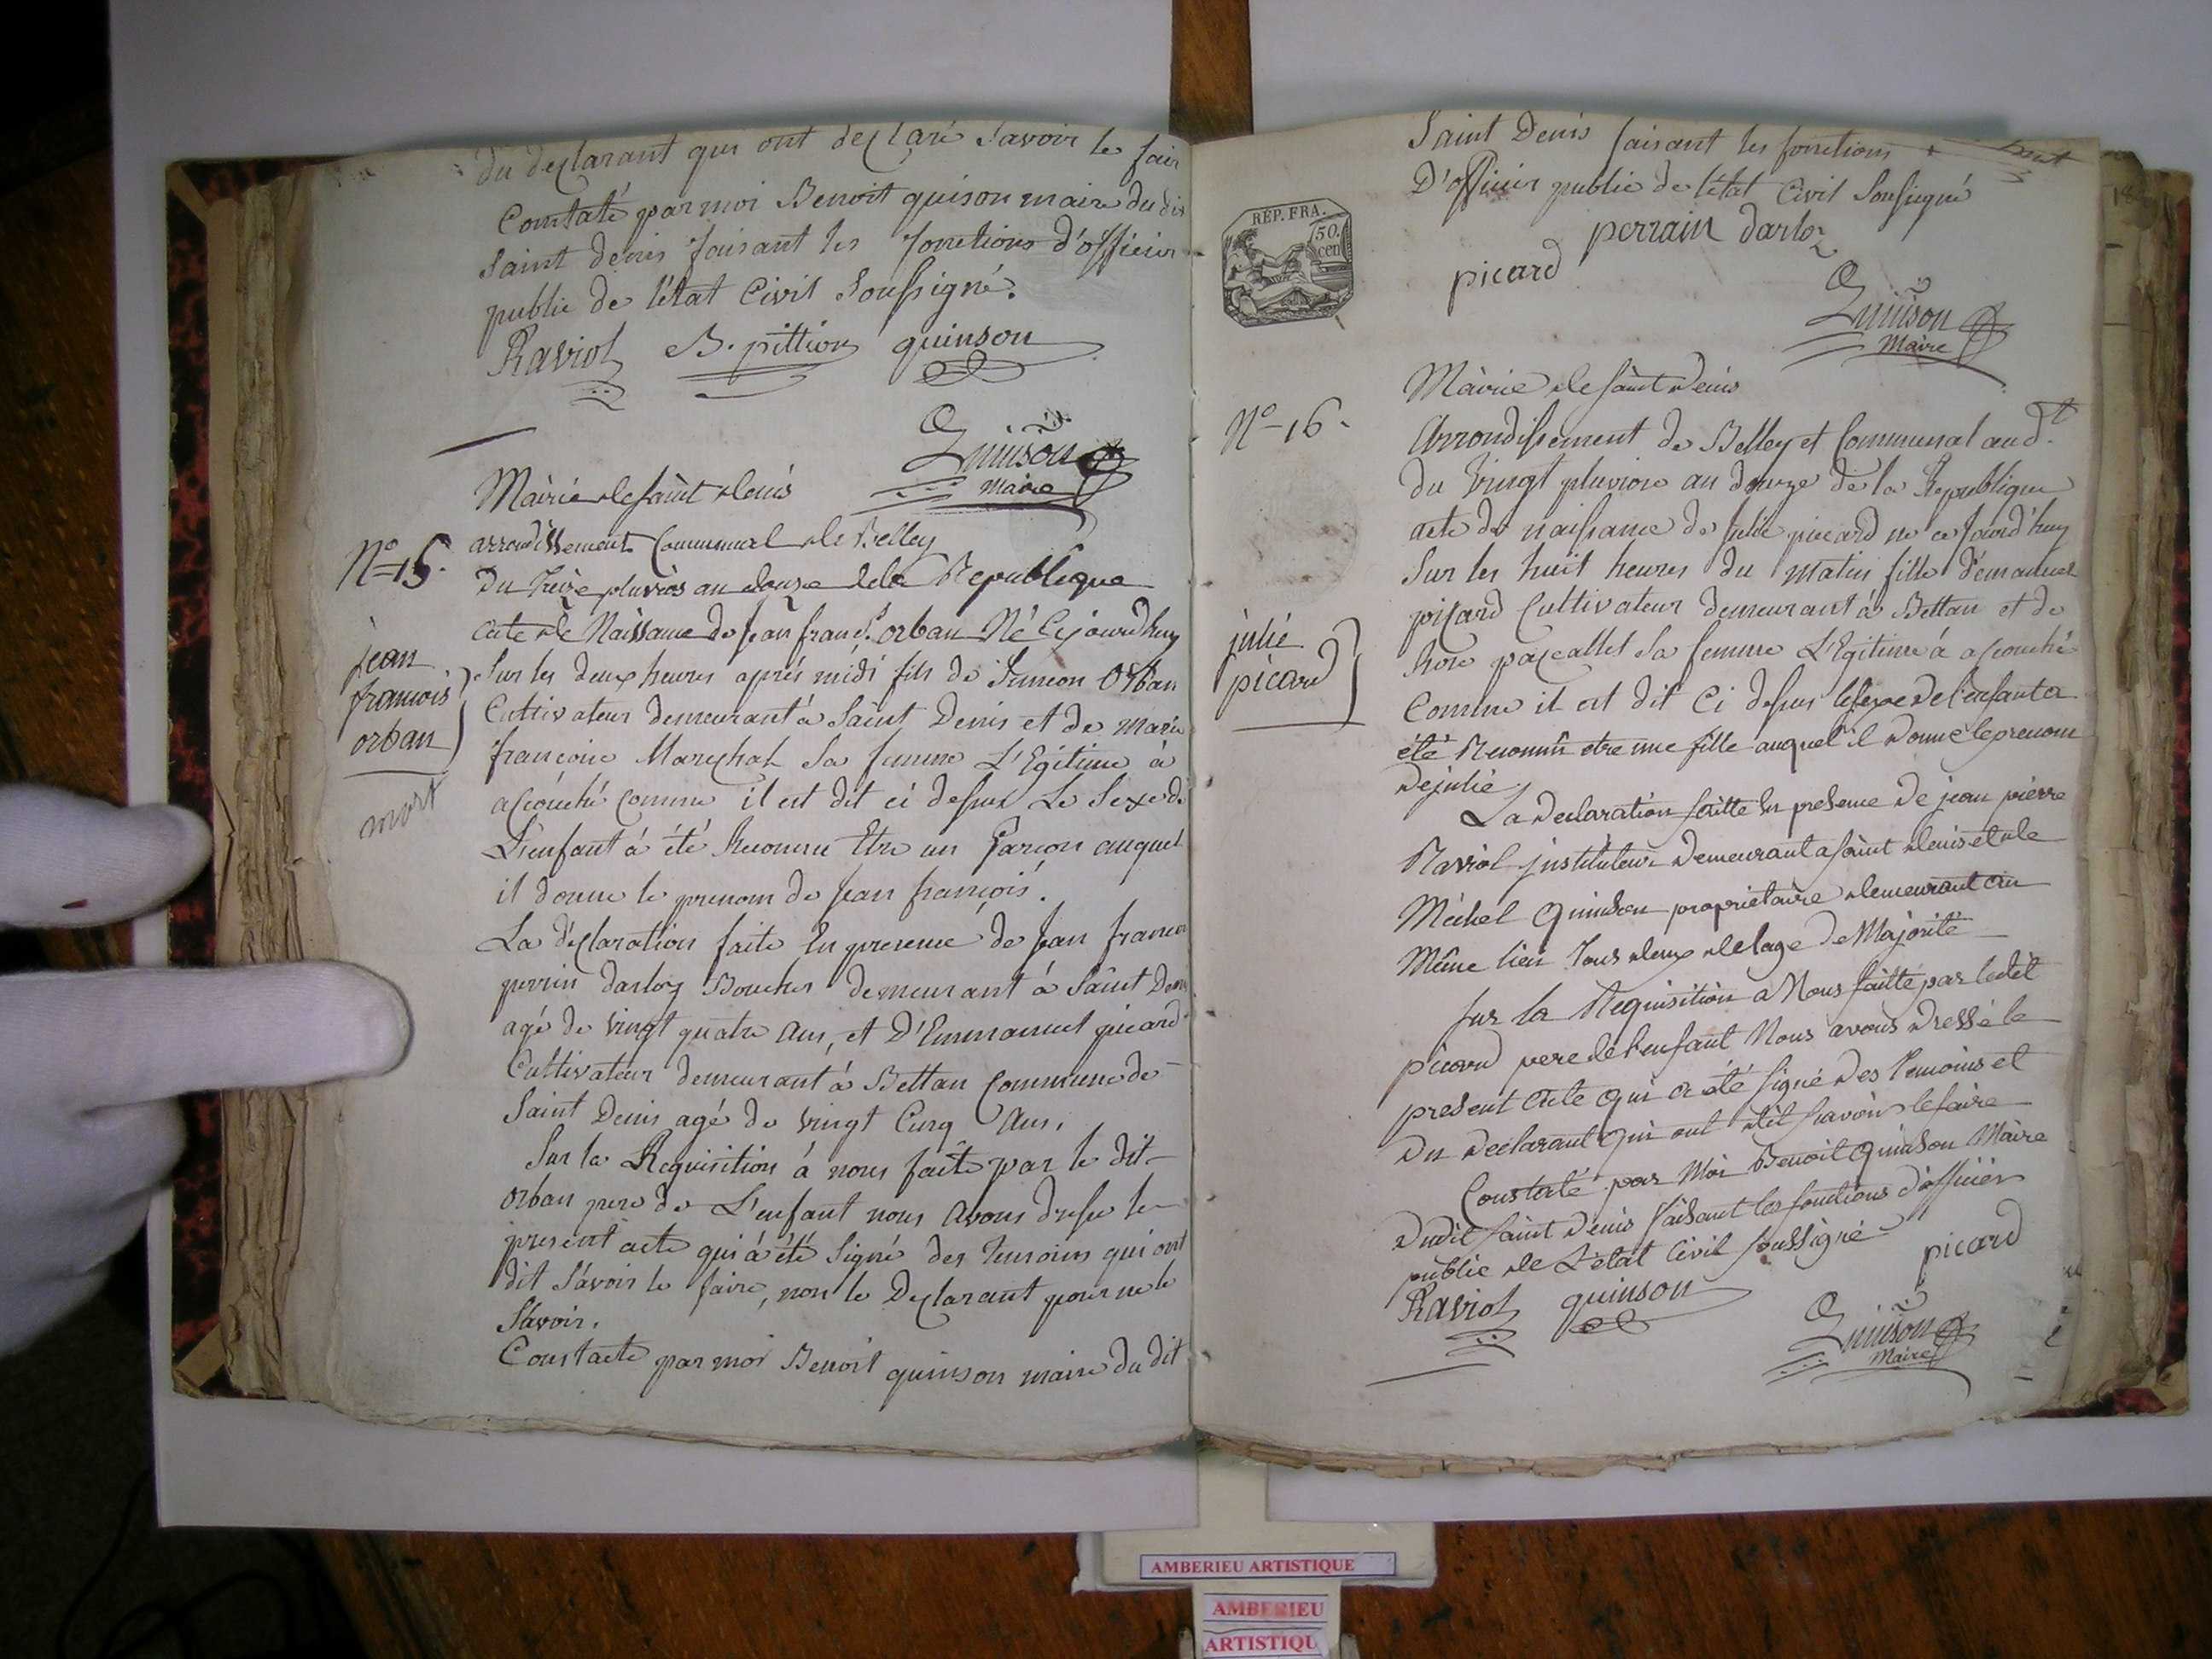 du declarant qui ont declaré Savoir le fair
Constaté par moi Benoit quison maire du dit
saint denis faisant les fonctions d'officier
public de l'état Civil Soussigné.
Raviol B. pittion quinson
Quinson
Maire
Mairie de saint denis
arrondissement Communal de Belley
No 15.
Du treize pluvios an douze de la Republique
acte de Naissance de jean franc.s orban Né Cejourd'huy
jean
françois
orban
mort
Sur les deux heures aprés midi fils de Simeon Orban
Cultivateur demeurant à Saint Denis et de Marie
françoise Marechal Sa femme L'Egitime à
acouché comme il est dit ci dessus Le Sexe de
L'enfant à été Reconnu Etre un Garçon auquel
il donne le prenom de Jean françois.
La déclaration faite En presence de Jean francois
perrin darloz Boucher demeurant à Saint Denis
agé de vingt quatre Ans, et D'Emmanuel picard
Cultivateur demeurant à Bettan Commune de
Saint Denis agé de vingt Cinq Ans.
Sur la Requisition à nous faite par le dit
Orban pere de L'enfant nous avons dressé le
present acte qui à été Signé des temoins qui ont
dit Savoir le faire, non le Declarant pour ne le
Savoir.
Constaté par moi Benoit quinson maire du dit
Saint Denis faisant les fonctions
D'officier public de l'état Civil Soussigné
REP. FRA.
50.
cen
perrain darloz
picard
Quinson
Maire
Mairie de saint denis
No 16.
Arrondissement de Belley et Communal aud.t
du Vingt pluviose an douze de la Republique
acte de naissance de Julie piccard ne cejourd'huy
Sur les huit heures du matin fille d'emanuel
picard Cultivateur demeurant à Bettan et de
julie
picard
Rose pacallet Sa femme L'Egitime à acouché
Comme il est dit Ci dessus le sexe de l'enfant a
été Reconnu etre une fille auquel il donne le prenom
de julie.
La declaration faitte En presence de jean pierre
Raviol jnstituteur demeurant a saint denis et de
Michel Quinson proprietaire demeurant au
Même lieu tous deux de l'age de Majorité
Sur la Requisition a Nous faitte par ledit
picard pere de l'enfant Nous avons dressé le
present acte qui a été signé des temoins et
du declarant qui ont dit savoir le faire
Constaté par Moi Benoit Quinson Maire
dudit saint denis faisant les fonctions d'officier
public de L'etat Civil soussigné
picard
Raviol quinson
Quinson
Maire
AMBERIEU ARTISTIQUE
AMBERIEU
ARTISTIQU